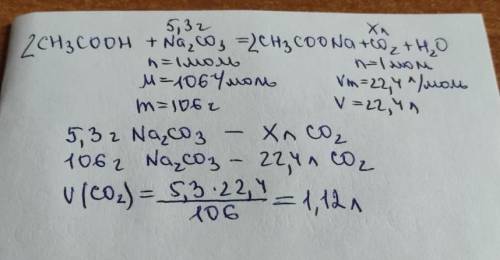 5,3г Xл
2CH3COOH + Na2CO3 = 2CH3COONa + CO2 + H2O
n = 1 моль n = 1 моль
M = 106 г/моль Vm = 22,4 л/моль
m = 106 г V = 22,4 л
5,3 г Na2CO3 — Xл CO2
106 г Na2CO3 — 22,4 л CO2
V(CO2) = 5,3 · 22,4 / 106 = 1,12 л